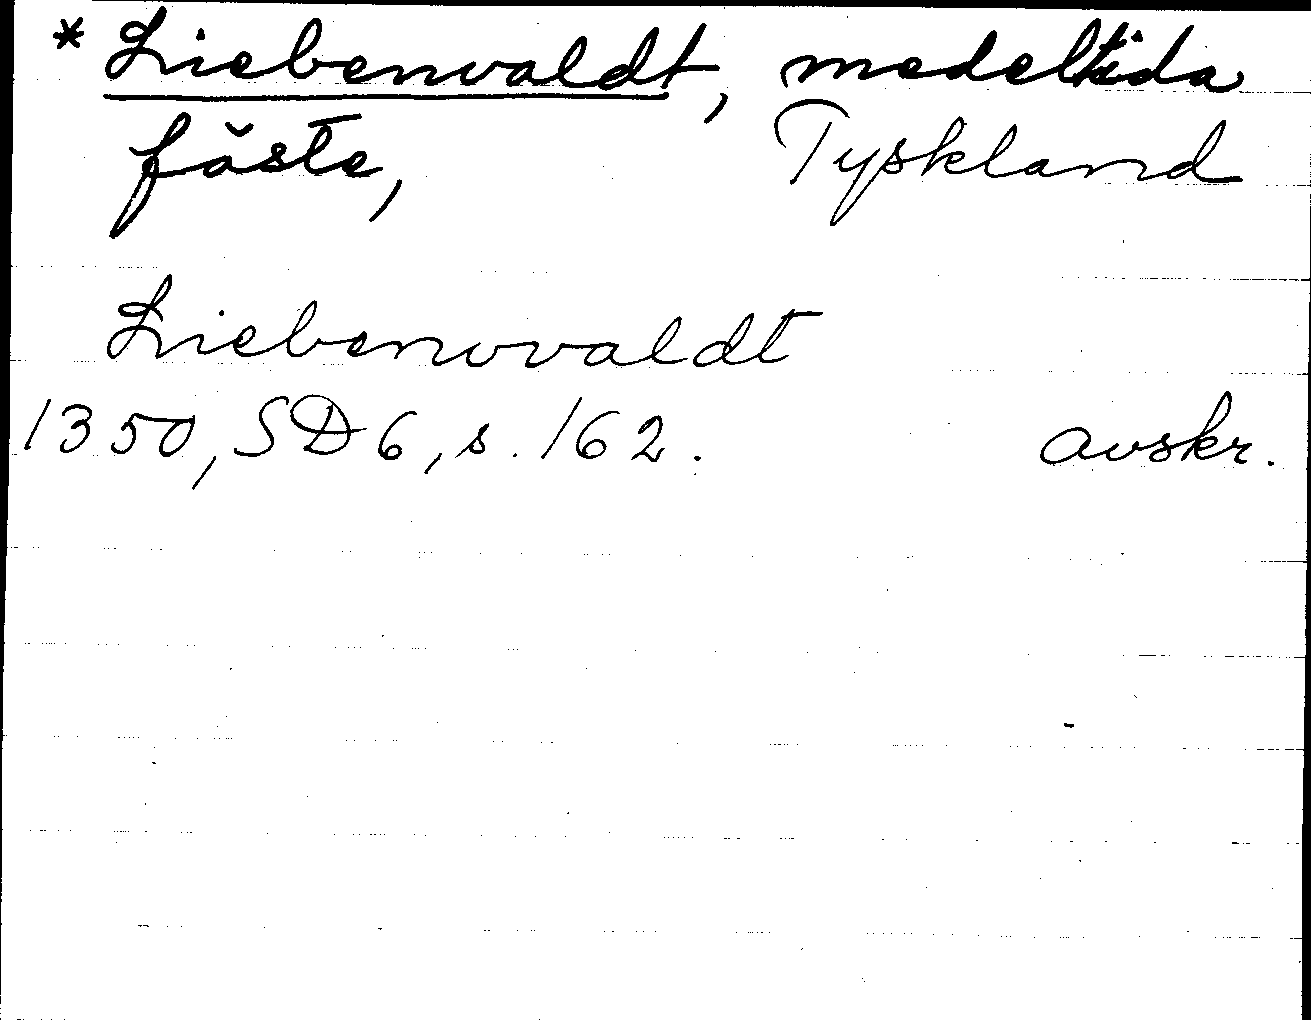 * Liebenwaldt, medeltida
fäste, Tyskland
Liebenwaldt
1350, SD 6, s. 162. avskr.